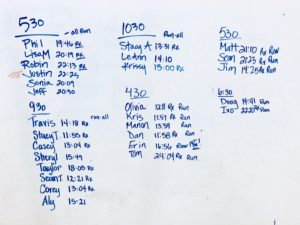 530 - all Run
Phil 19:46 RX
Lisa M 20:19 RX
Robin 22:13 RX
Justin 22:24
Sonia 20:09
Jeff 20:30
930 run-all
Travis 14:18 RX
Stacy T. 11:55 RX
Casey 13:04 RX
Sheryl 15:49
Taylor 18:05 RX
Sean T. 12:21 RX
Corey 13:04 RX
Aly 15:21
1030 Run-all
Stacy A 13:31 RX
LeAnn 14:10
Krissy 15:00 RX
430
Olivia 12:11 RX Run
Kris 11:57 RX Run
Marion 13:59 Run
Dan 11:58 RX Run
Erin 16:56 Row
Tim 24:04 RX Run
530
Matt 21:10 RX Run
Sean 21:23 RX Run
Jim 14:25 RX Run
6:30
Doug 14:41 Run
Ivo Run